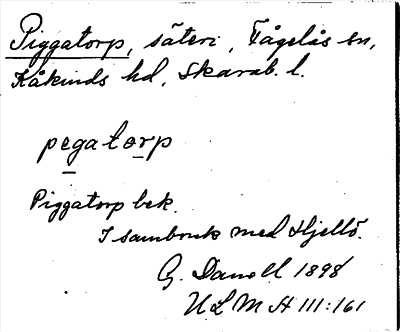 Piggatorp, säteri, Fågelås sn,
Kåkinds hd, Skarab. l.
pegatorp
Piggatorp bek.
I sambruk med Hjellö.
G. Danell 1898
ULMA 111:161